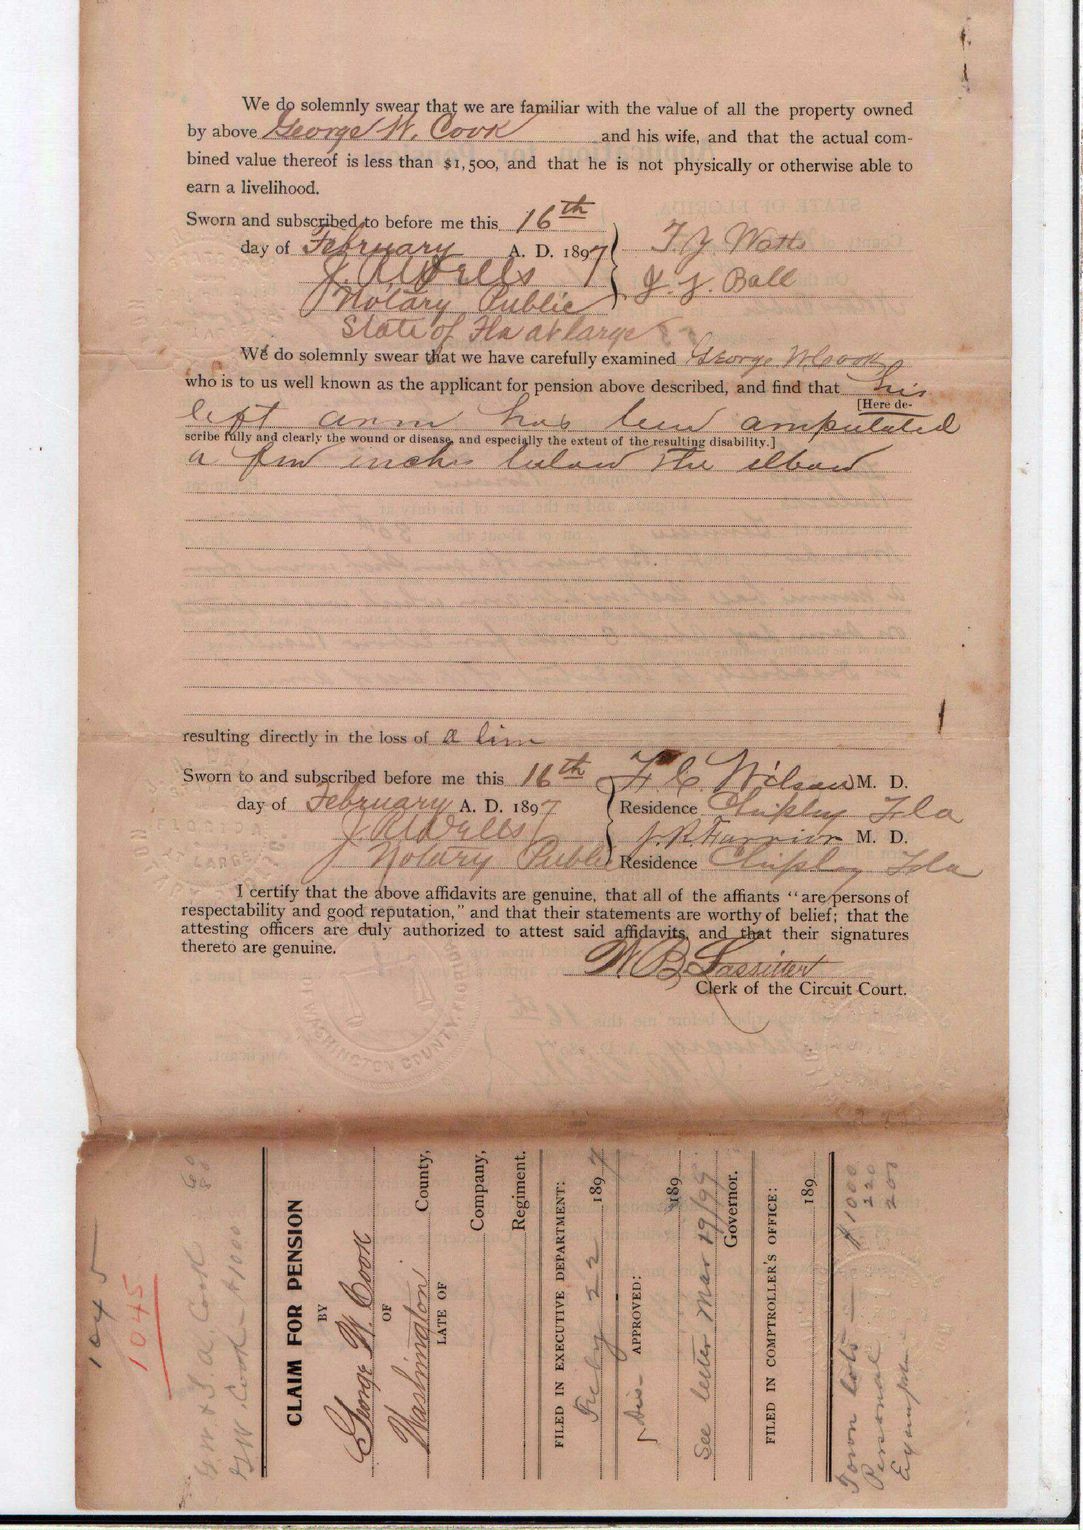 We do solemnly swear that we are familiar with the value of all the property owned
by above George W. Cook and his wife, and that the actual com-
bined value thereof is less than $1,500, and that he is not physically or otherwise able to
earn a livelihood.
Sworn and subscribed to before me this 16th
day of February A. D. 1897
T J Watts
J. R. Wells
J. J. Ball
Notary Public
State of Fla at large
We do solemnly swear that we have carefully examined George W. Cook
who is to us well known as the applicant for pension above described, and find that his
[Here de-
left arm has been amputated
scribe fully and clearly the wound or disease, and especially the extent of the resulting disability.]
a few inches below the elbow
resulting directly in the loss of a lim
Sworn to and subscribed before me this 16th
Wilson M. D.
day of February A. D. 1897
Residence Chipley Fla
J. R. Wells
J. R. Farrior M. D.
Notary Public
Residence Chipley Fla
I certify that the above affidavits are genuine, that all of the affiants "are persons of
respectability and good reputation," and that their statements are worthy of belief; that the
attesting officers are duly authorized to attest said affidavits, and that their signatures
thereto are genuine.
W. B. Lassitter
Clerk of the Circuit Court.
WASHINGTON COUNTY
1045
1045
G. W. & S. A. Cook 60
80
G W. Cook — $1000
CLAIM FOR PENSION
BY
George W. Cook
OF
Washington County,
LATE OF
Company,
Regiment.
FILED IN EXECUTIVE DEPARTMENT:
Feby 22 1897
Dis- APPROVED:
189
See letter Mar 19/99
Governor.
FILED IN COMPTROLLER'S OFFICE:
189
Town lots — $1000
Personal 220
200